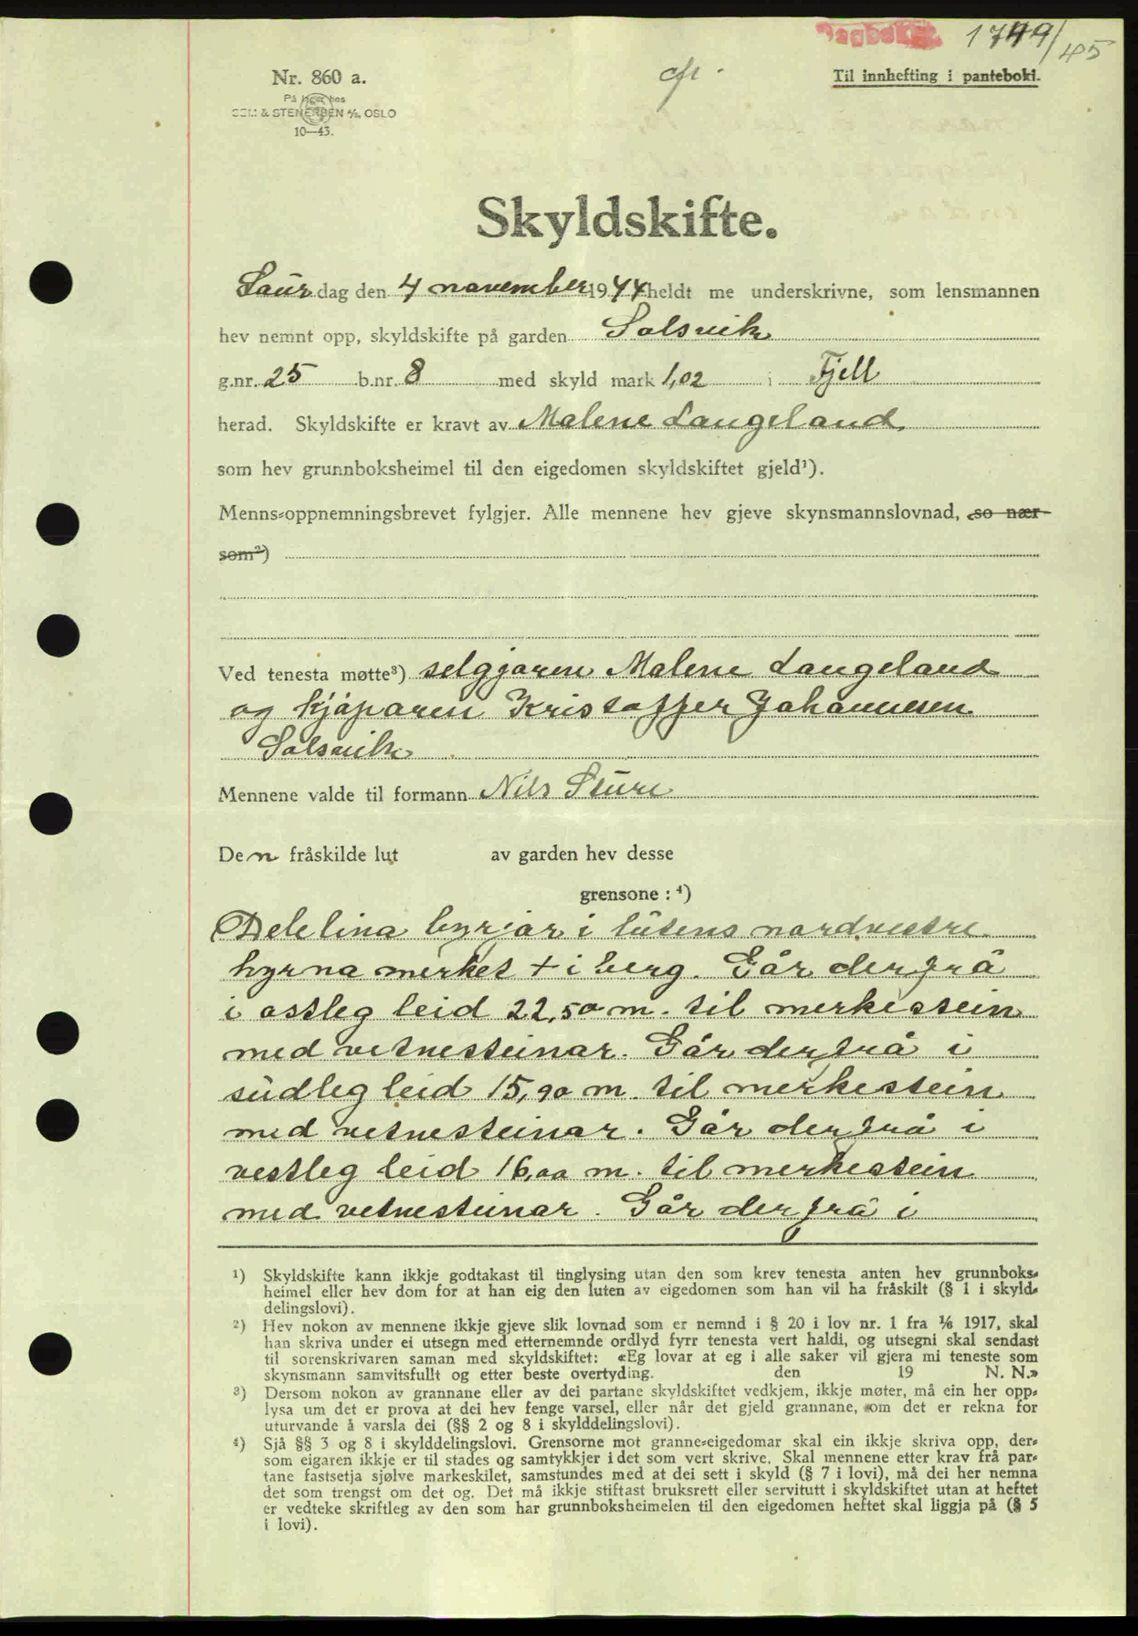 Dagbok 1749/45
Nr. 860 a.
På lager hos
SEM & STENERSEN A/S, OSLO
10—43.
Til innhefting i pantebokі.
Skyldskifte.
Laurdag den 4 november 1944 heldt me underskrivne, som lensmannen
hev nemnt opp, skyldskifte på garden Solsvik
g.nr. 25 b.nr. 8 med skyld mark 1,02 i Fjell
herad. Skyldskifte er kravt av Malene Langeland
som hev grunnboksheimel til den eigedomen skyldskiftet gjeld¹).
Menns-oppnemningsbrevet fylgjer. Alle mennene hev gjeve skynsmannslovnad, so nær-
som²)
Ved tenesta møtte³) selgjaren Malene Langeland
og kjøparen Kristoffer Johannesen
Solsvik
Mennene valde til formann Nils Sture
Den fråskilde lut av garden hev desse
grensone : ⁴)
Delelina byrjar i lutens nordvestre
hyrna merket + i berg. Går derfrå
i ostleg leid 22,50 m. til merkestein
med vetnesteinar. Går derfrå i
sudleg leid 15,90 m. til merkestein
med vetnesteinar. Går derfrå i
vestleg leid 16,00 m. til merkestein
med vetnesteinar. Går derfrå i
¹) Skyldskifte kann ikkje godtakast til tinglysing utan den som krev tenesta anten hev grunnboks-
heimel eller hev dom for at han eig den luten av eigedomen som han vil ha fråskilt (§ 1 i skyld-
delingslovi).
²) Hev nokon av mennene ikkje gjeve slik lovnad som er nemnd i § 20 i lov nr. 1 fra 1/6 1917, skal
han skriva under ei utsegn med etternemnde ordlyd fyrr tenesta vert haldi, og utsegni skal sendast
til sorenskrivaren saman med skyldskiftet: «Eg lovar at eg i alle saker vil gjera mi teneste som
skynsmann samvitsfullt og etter beste overtyding. den 19 N. N.»
³) Dersom nokon av grannane eller av dei partane skyldskiftet vedkjem, ikkje møter, må ein her opp-
lysa um det er prova at dei hev fenge varsel, eller når det gjeld grannane, om det er rekna for
uturvande å varsla dei (§§ 2 og 8 i skylddelingslovi).
⁴) Sjå §§ 3 og 8 i skylddelingslovi. Grensorne mot granne-eigedomar skal ein ikkje skriva opp, der-
som eigaren ikkje er til stades og samtykkjer i det som vert skrive. Skal mennene etter krav frå par-
tane fastsetja sjølve markeskilet, samstundes med at dei sett i skyld (§ 7 i lovi), må dei her nemna
det som trengst om det og. Det må ikkje stiftast bruksrett eller servitutt i skyldskiftet utan at heftet
er vedteke skriftleg av den som har grunnboksheimelen til den eigedomen heftet skal liggja på (§ 5
i lovi).